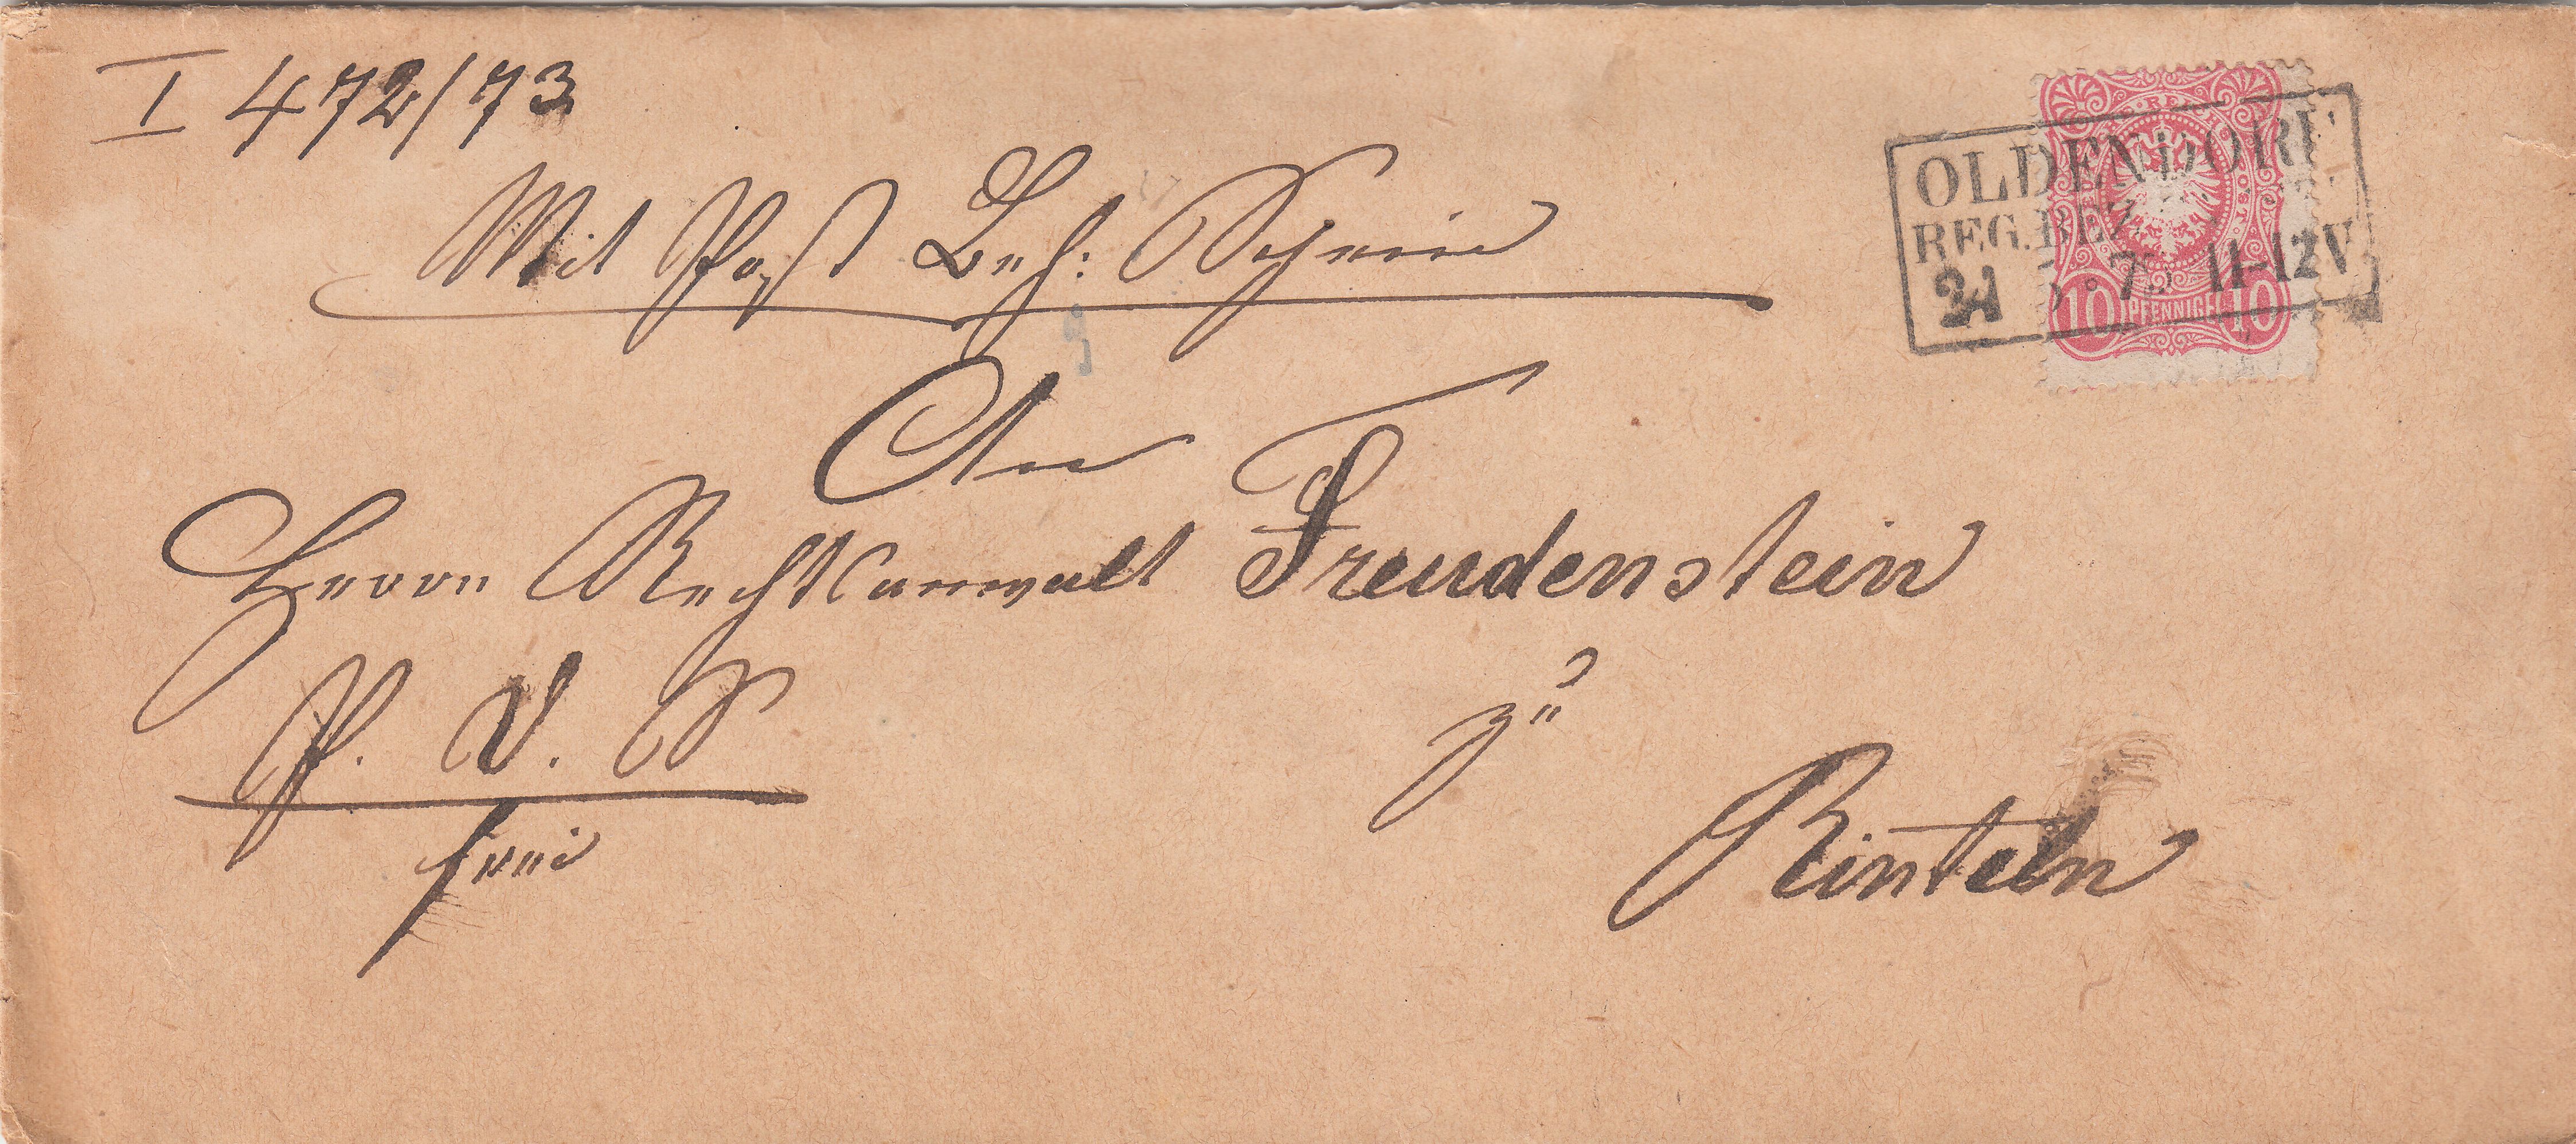 I 472/73
Mit Post Beh: Schein
An
Herrn Rechtsanwalt Freudenstein
P. V. S
frei
zu
Rinteln
OLDENDORF
REG.BEZ
11-12V
10 PFENNIGE 10